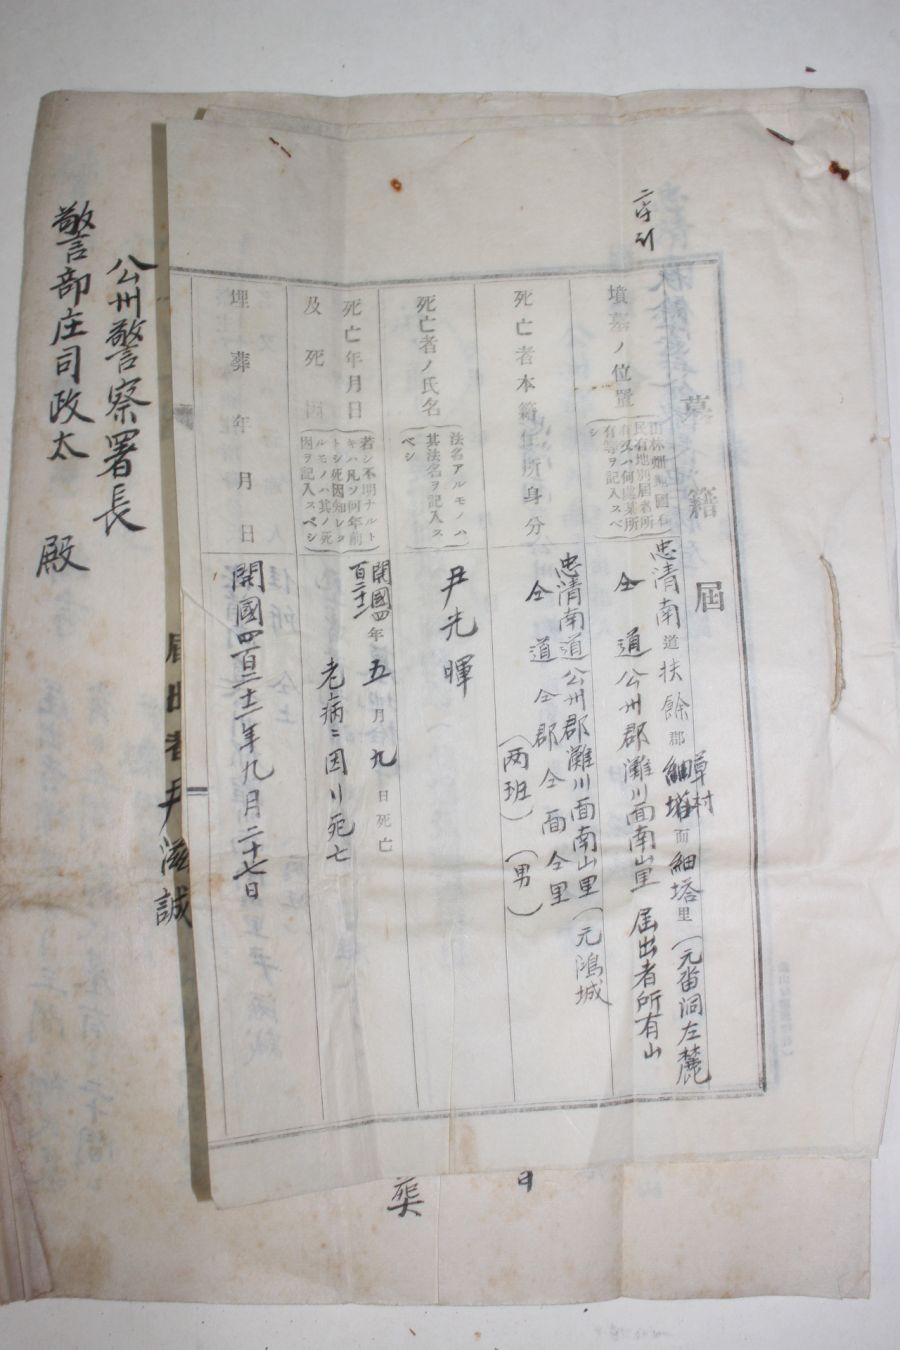 二字訂
墓籍届
墳墓ノ位置
民有地別居者所
有又ハ何處某所
有等ヲ記入スベ
シ
忠清南道扶餘郡草村面細塔里(元畓洞左麓
細塔
仝 道公州郡灘川面南山里 届出者所有山
死亡者本籍住所身分
忠清南道公州郡灘川面南山里(元鴻城
仝道仝郡仝面仝里
(両班)(男)
死亡者ノ氏名
法名アルモノハ
其法名ヲ記入ス
ベシ
尹光暉
死亡年月日
及死因
若シ不明ナルト
キハ凡ソ何年前
トシ死因知レタ
ルモノハ其ノ死
因ヲ記入スベシ
開國四百二十二年五月九日死亡
老病ニ因リ死亡
埋葬年月日
開國四百三十二年九月二十七日
届出者尹滋誠
公州警察署長
警部庄司政太 殿